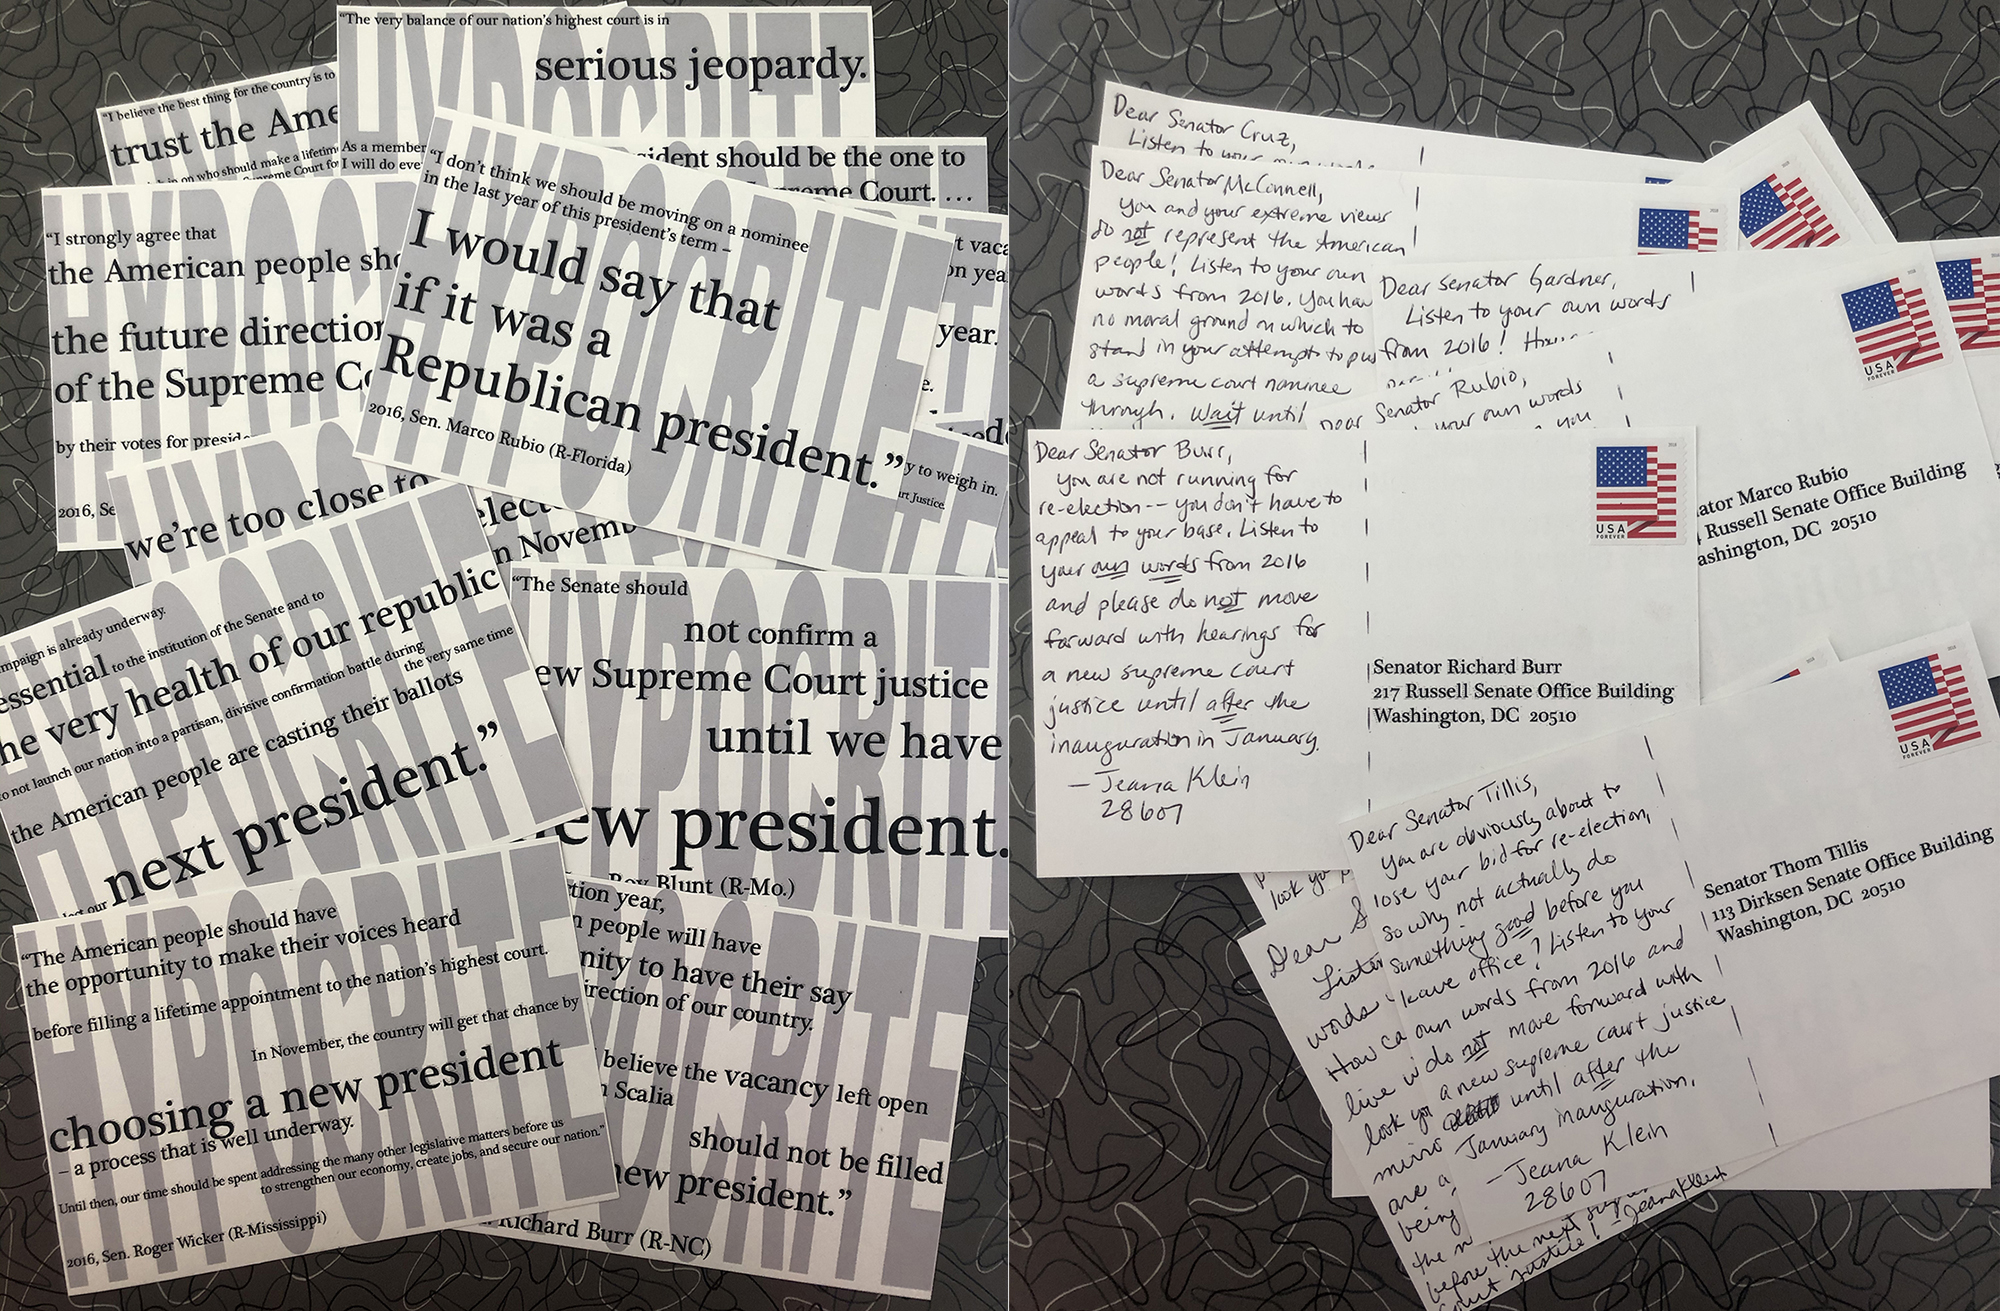 "The very balance of our nation's highest court is in
serious jeopardy.
As a member
I will do eve
"I believe the best thing for the country is to
trust the Ame
who should make a lifetim
Supreme Court fo
ident should be the one to
Supreme Court. …
HYPOCRITE
"I strongly agree that
the American people sho
the future direction
of the Supreme Co
by their votes for preside
2016, Se
HYPOCRITE
"I don't think we should be moving on a nominee
in the last year of this president's term –
I would say that
if it was a
Republican president."
2016, Sen. Marco Rubio (R-Florida)
t vaca
on yea
year.
y to weigh in.
rt Justice.
we're too close to
elect
n Novemb
mpaign is already underway.
essential to the institution of the Senate and to
he very health of our republic
to not launch our nation into a partisan, divisive confirmation battle during
the very same time
the American people are casting their ballots
our next president."
HYPOCRITE
"The Senate should
not confirm a
ew Supreme Court justice
until we have
new president.
Roy Blunt (R-Mo.)
HYPOCRITE
"The American people should have
the opportunity to make their voices heard
before filling a lifetime appointment to the nation's highest court.
In November, the country will get that chance by
choosing a new president
– a process that is well underway.
Until then, our time should be spent addressing the many other legislative matters before us
to strengthen our economy, create jobs, and secure our nation."
2016, Sen. Roger Wicker (R-Mississippi)
HYPOCRITE
tion year,
n people will have
nity to have their say
irection of our country.
believe the vacancy left open
n Scalia
should not be filled
new president."
Richard Burr (R-NC)
Dear Senator Cruz,
Listen to your own words
Dear Senator McConnell,
You and your extreme views
do not represent the American
people! Listen to your own
words from 2016. You hav
no moral ground on which to
stand in your attempt to pus
a supreme court nominee
through. Wait until
Dear Senator Gardner,
Listen to your own words
from 2016! How
Dear Senator Rubio,
your own words
you
USA
FOREVER
ator Marco Rubio
Russell Senate Office Building
ashington, DC 20510
Dear Senator Burr,
you are not running for
re-election -- you don't have to
appeal to your base. Listen to
your own words from 2016
and please do not move
forward with hearings for
a new supreme court
justice until after the
inauguration in January.
– Jeana Klein
28607
USA
FOREVER
Senator Richard Burr
217 Russell Senate Office Building
Washington, DC 20510
look yo
Dear S
Listen
words
How ca
live w
look yo
mirro
are a
being
the n
before the next supr
court justice! – Jeana Klein
Dear Senator Tillis,
you are obviously about to
lose your bid for re-election,
so why not actually do
something good before you
leave office? Listen to your
own words from 2016 and
do not move forward with
a new supreme court justice
until after the
January inauguration.
– Jeana Klein
28607
USA
FOREVER
Senator Thom Tillis
113 Dirksen Senate Office Building
Washington, DC 20510